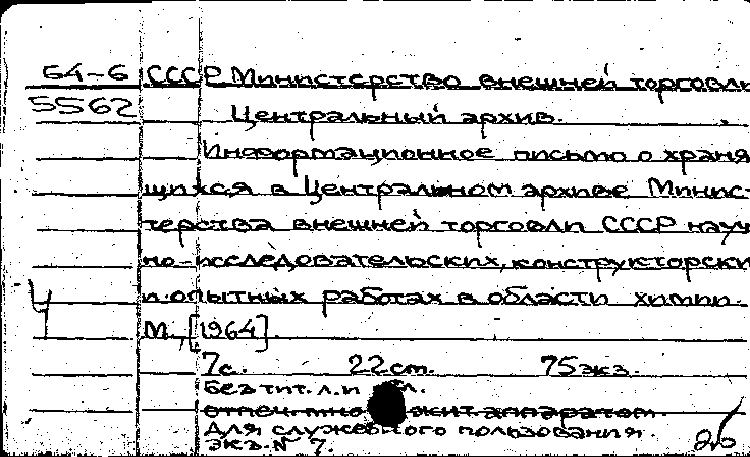 64-6 СССР Министерство внешней торговли
5562 Центральный архив.
Информационное письмо о храня
щихся в Центральном архиве Минис-
терства внешней торговли СССР науч
но-исследовательских, конструкторски
и опытных работах в области химии.
М., [1964]
7с. 22 см. 75 экз.
Без тит. л. и
отпеч. аппаратом.
Для служебного пользования.
экз. № 7.